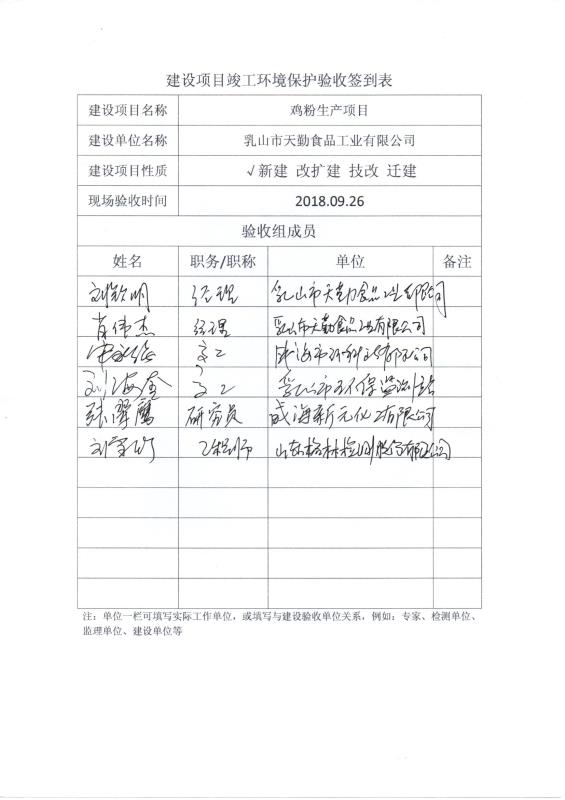 建设项目竣工环境保护验收签到表
建设项目名称 鸡粉生产项目
建设单位名称 乳山市天勤食品工业有限公司
建设项目性质 √新建 改扩建 技改 迁建
现场验收时间 2018.09.26
验收组成员
姓名 职务/职称 单位 备注
经理 乳山市天勤食品工业有限公司
肖伟杰 经理 乳山市天勤食品工业有限公司
高工
刘海金 高工 乳山市环保监测站
张翠鹰 研究员 威海新元化工有限公司
工程师 山东格林检测股份有限公司
注：单位一栏可填写实际工作单位，或填写与建设验收单位关系，例如：专家、检测单位、
监理单位、建设单位等